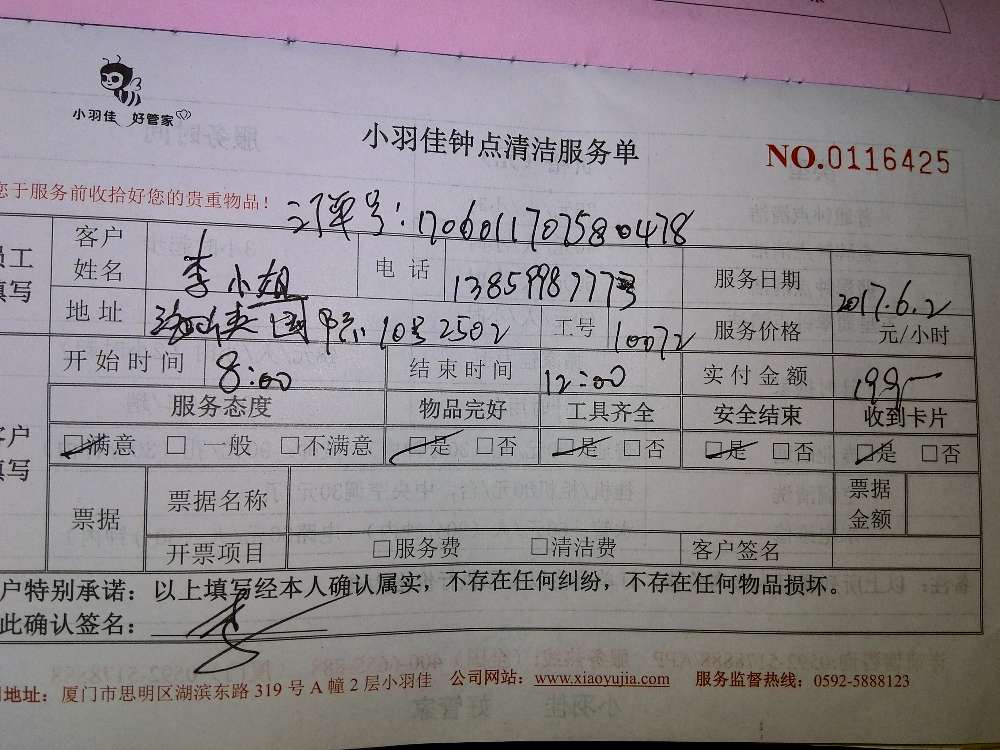 小羽佳 好管家
小羽佳钟点清洁服务单
NO.0116425
您于服务前收拾好您的贵重物品！
订单号：170601170758 0478
员工填写
客户姓名 李小姐 电话 服务日期 2017.6.2
地址 10号2502 工号 10072 服务价格 元/小时
开始时间 8:00 结束时间 12:00 实付金额 199-
客户填写
服务态度 物品完好 工具齐全 安全结束 收到卡片
☑满意 □一般 □不满意 ☑是 □否 ☑是 □否 ☑是 □否 ☑是 □否
票据 票据名称 票据金额
开票项目 □服务费 □清洁费 客户签名
户特别承诺：以上填写经本人确认属实，不存在任何纠纷，不存在任何物品损坏。
此确认签名：李
地址：厦门市思明区湖滨东路 319 号 A 幢 2 层小羽佳 公司网站：www.xiaoyujia.com 服务监督热线：0592-5888123